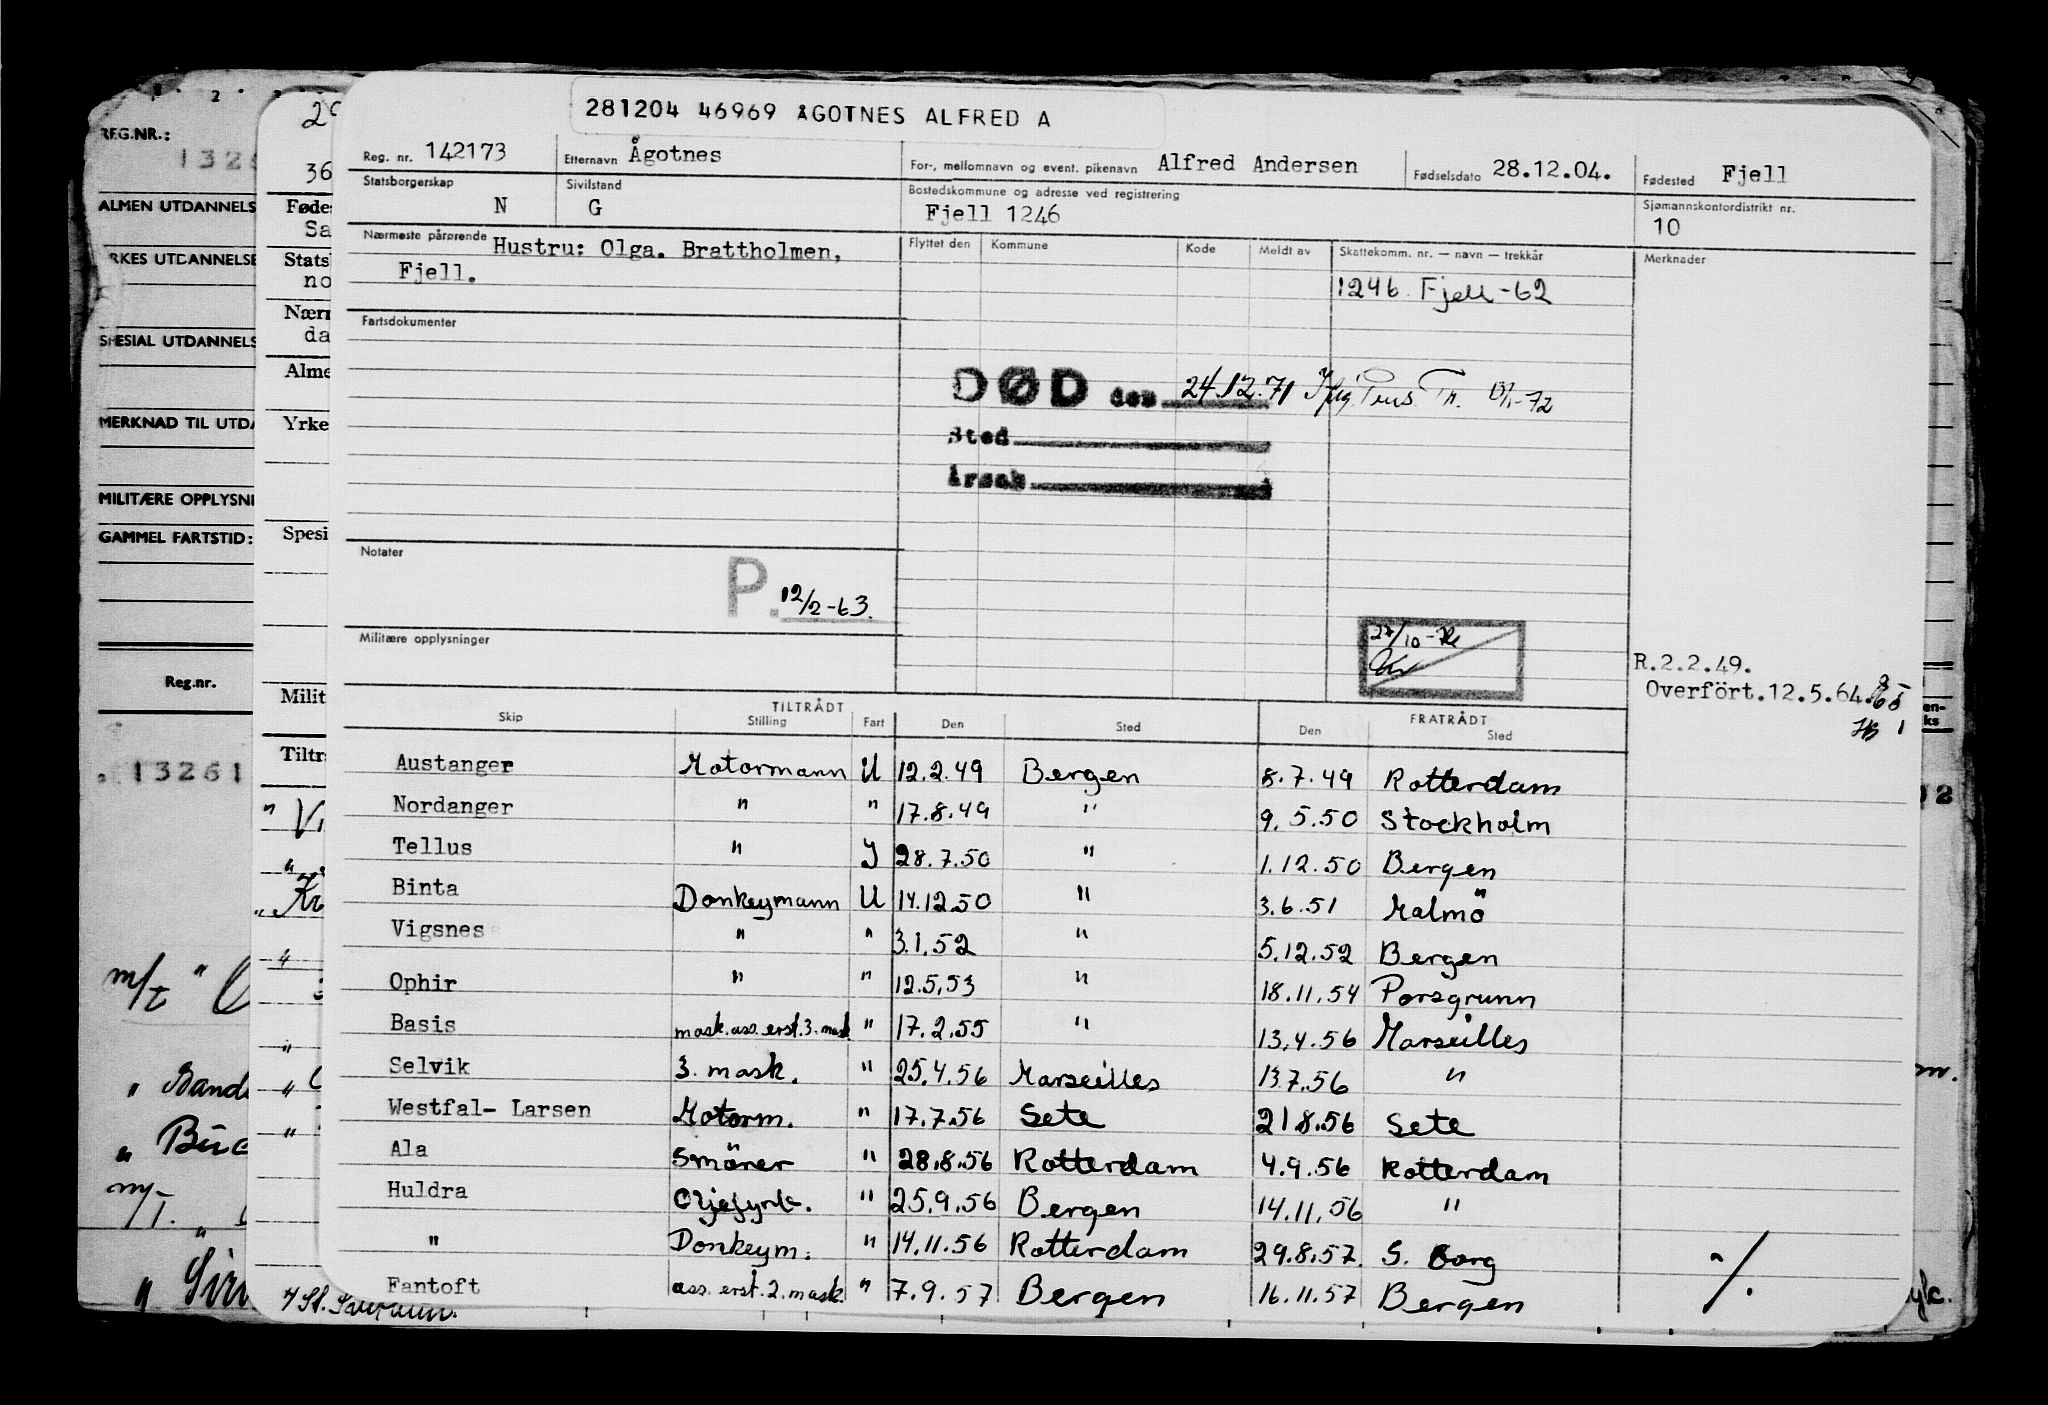 281204 46969 ÅGOTNES ALFRED A
Reg. nr. 142173 Etternavn Ågotnes For-, mellomnavn og event. pikenavn Alfred Andersen Fødselsdato 28.12.04. Fødested Fjell
Statsborgerskap N Sivilstand G Bostedskommune og adresse ved registrering Fjell 1246 Sjømannskontordistrikt nr. 10
Nærmeste pårørende Hustru: Olga. Brattholmen, Fjell.
Flyttet den Kommune Kode Meldt av Skattekomm. nr. — navn — trekkår Merknader
1246 Fjell-62
Fartsdokumenter
DØD den 24.12.71
Sted
Årsak
Notater
P. 12/2-63.
Militære opplysninger
27/10-
R.2.2.49.
Overfört.12.5.64.
TILTRÅDT FRATRÅDT
Skip Stilling Fart Den Sted Den Sted
Austanger Motormann U 12.2.49 Bergen 8.7.49 Rotterdam
Nordanger " " 17.8.49 " 9.5.50 Stockholm
Tellus " J 28.7.50 " 1.12.50 Bergen
Binta Donkeymann U 14.12.50 " 3.6.51 Malmö
Vigsnes " " 3.1.52 " 5.12.52 Bergen
Ophir " " 12.5.53 " 18.11.54 Porsgrunn
Basis mask.ass.erst.3.mask " 17.2.55 " 13.4.56 Marseilles
Selvik 3. mask. " 25.4.56 Marseilles 13.7.56 "
Westfal- Larsen Motorm. " 17.7.56 Sete 21.8.56 Sete
Ala Smörer " 28.8.56 Rotterdam 4.9.56 Rotterdam
Huldra Oljefyrb. " 25.9.56 Bergen 14.11.56 "
" Donkeym. " 14.11.56 Rotterdam 29.8.57. S. Borg
Fantoft ass. erst.2.mask. " 7.9.57 Bergen 16.11.57 Bergen
./.
REG.NR.:
ALMEN UTDANNELS
RKES UTDANNELSE
SPESIAL UTDANNELS
MERKNAD TIL UTDA
MILITÆRE OPPLYSNI
GAMMEL FARTSTID:
Reg.nr.
13261
m/t "
" Band
m/T. "
36
Føde
Sa
Stats
no
Nærm
da
Alme
Yrke
Spesi
Milit
Tiltr